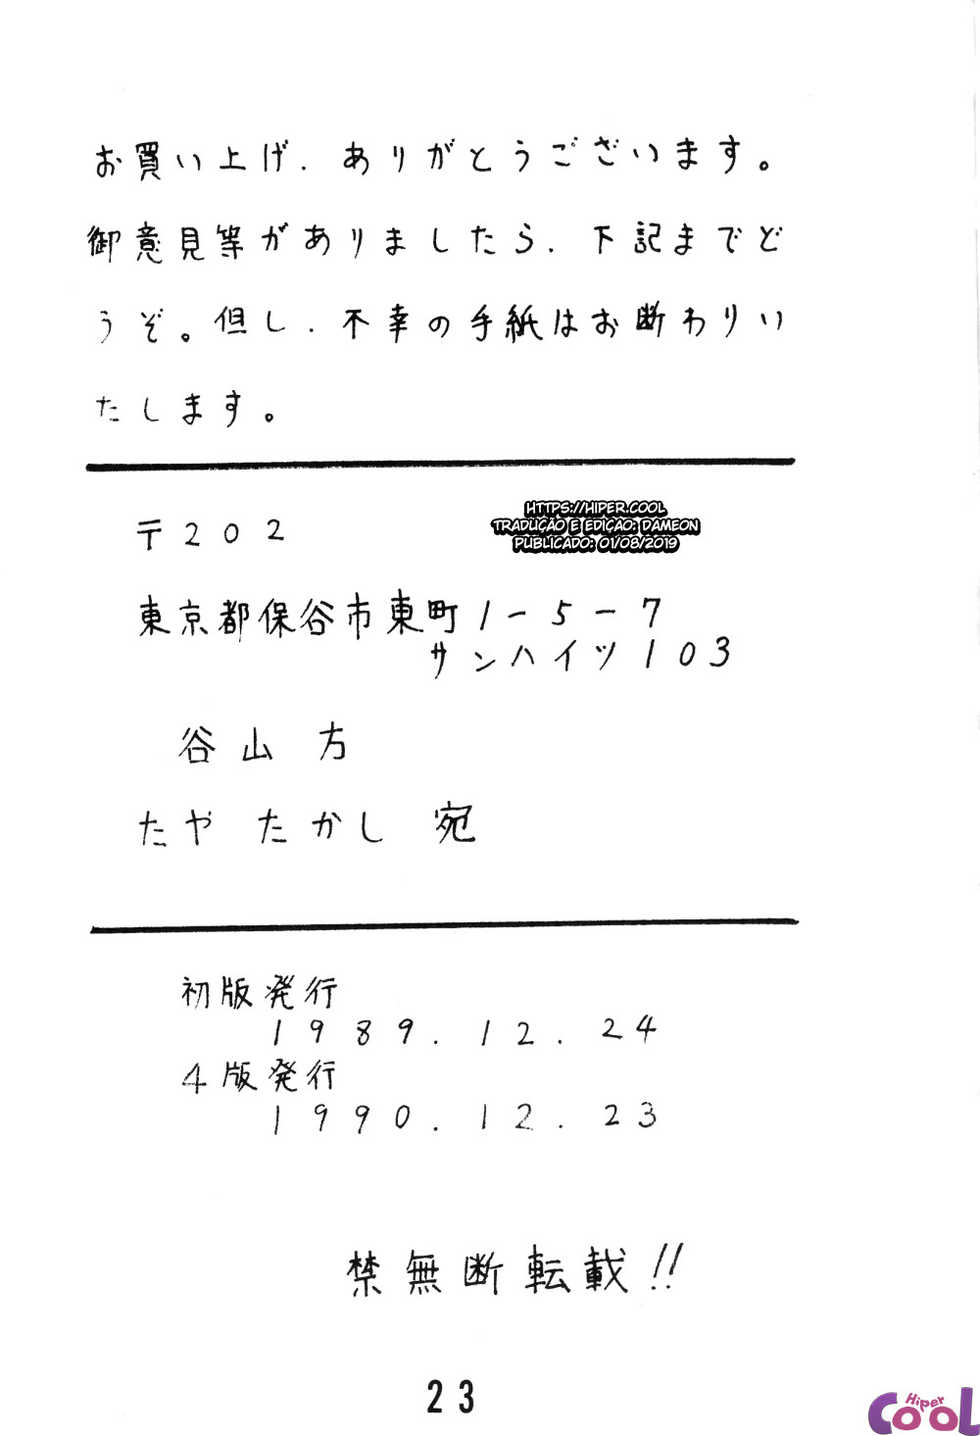 お買い上げ、ありがとうございます。
御意見等がありましたら、下記までど
うぞ。但し、不幸の手紙はお断わりい
たします。
〒202
HTTPS://HIPER.COOL
TRADUÇÃO E EDIÇÃO: DAMEON
PUBLICADO: 01/08/2019
東京都保谷市東町1-5-7
サンハイツ103
谷山方
たや たかし 宛
初版発行
1989.12.24
4版発行
1990.12.23
禁無断転載!!
23
Hiper
COOL